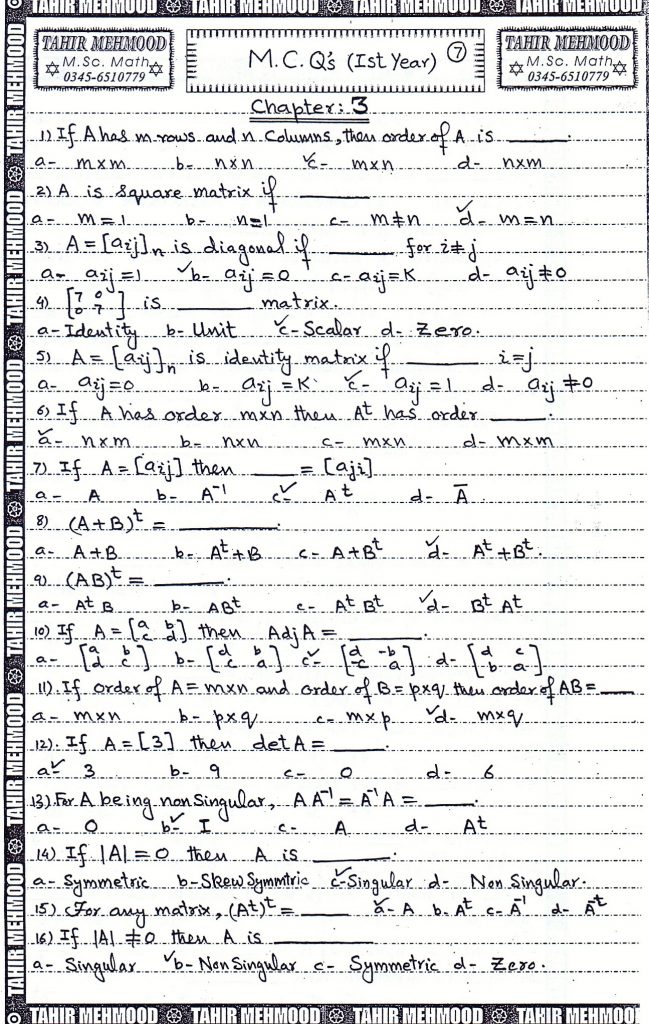 TAHIR MEHMOOD TAHIR MEHMOOD TAHIR MEHMOOD TAHIR MEHMOOD
TAHIR MEHMOOD
M.Sc. Math
0345-6510779
M.C.Q's (Ist Year) 7
TAHIR MEHMOOD
M.Sc. Math
0345-6510779
Chapter: 3
1) If A has m rows and n Columns, then order of A is ______.
a- m×m b- n×n ✓c- m×n d- n×m
2) A is square matrix if ______
a- m=1 b- n=1 c- m≠n ✓d- m=n
3) A=[aij]n is diagonal if ______ for i≠j
a- aij=1 ✓b- aij=0 c- aij=K d- aij≠0
4) [7 0 0 7] is ______ matrix.
a- Identity b- Unit ✓c- Scalar d- Zero.
5) A=[aij]n is identity matrix if ______ i=j
a- aij=0 b- aij=K ✓c- aij=1 d- aij≠0
6) If A has order m×n then At has order ______.
✓a- n×m b- n×n c- m×n d- m×m
7) If A=[aij] then ______ = [aji]
a- A b- A⁻¹ c✓ Aᵗ d- Ā
8) (A+B)ᵗ = ______.
a- A+B b- Aᵗ+B c- A+Bᵗ ✓d- Aᵗ+Bᵗ.
9) (AB)ᵗ = ______.
a- At B b- ABᵗ c- Aᵗ Bᵗ ✓d- Bᵗ At
10) If A=[a b c d] then Adj A = ______.
a- [a b d c] b- [d b c a] c✓ [d -b -c a] d- [d c b a]
11). If order of A=m×n and order of B=p×q then order of AB=______
a- m×n b- p×q c- m×p ✓d- m×q
12). If A=[3] then det A = ______.
a✓ 3 b- 9 c- 0 d- 6
13) For A being non Singular, A A⁻¹ = A⁻¹A = ______.
a- 0 b✓ I c- A d- At
14) If |A|=0 then A is ______.
a- Symmetric b- Skew Symmtric ✓c- Singular d- Non Singular.
15) For any matrix, (At)ᵗ = ______ ✓a- A b. Aᵗ c- A⁻¹ d- A⁻ᵗ
16) If |A| ≠0 then A is ______
a- Singular ✓b- Non Singular c- Symmetric d- Zero.
TAHIR MEHMOOD TAHIR MEHMOOD TAHIR MEHMOOD TAHIR MEHMOOD
TAHIR MEHMOOD TAHIR MEHMOOD TAHIR MEHMOOD TAHIR MEHMOOD TAHIR MEHMOOD TAHIR MEHMOOD